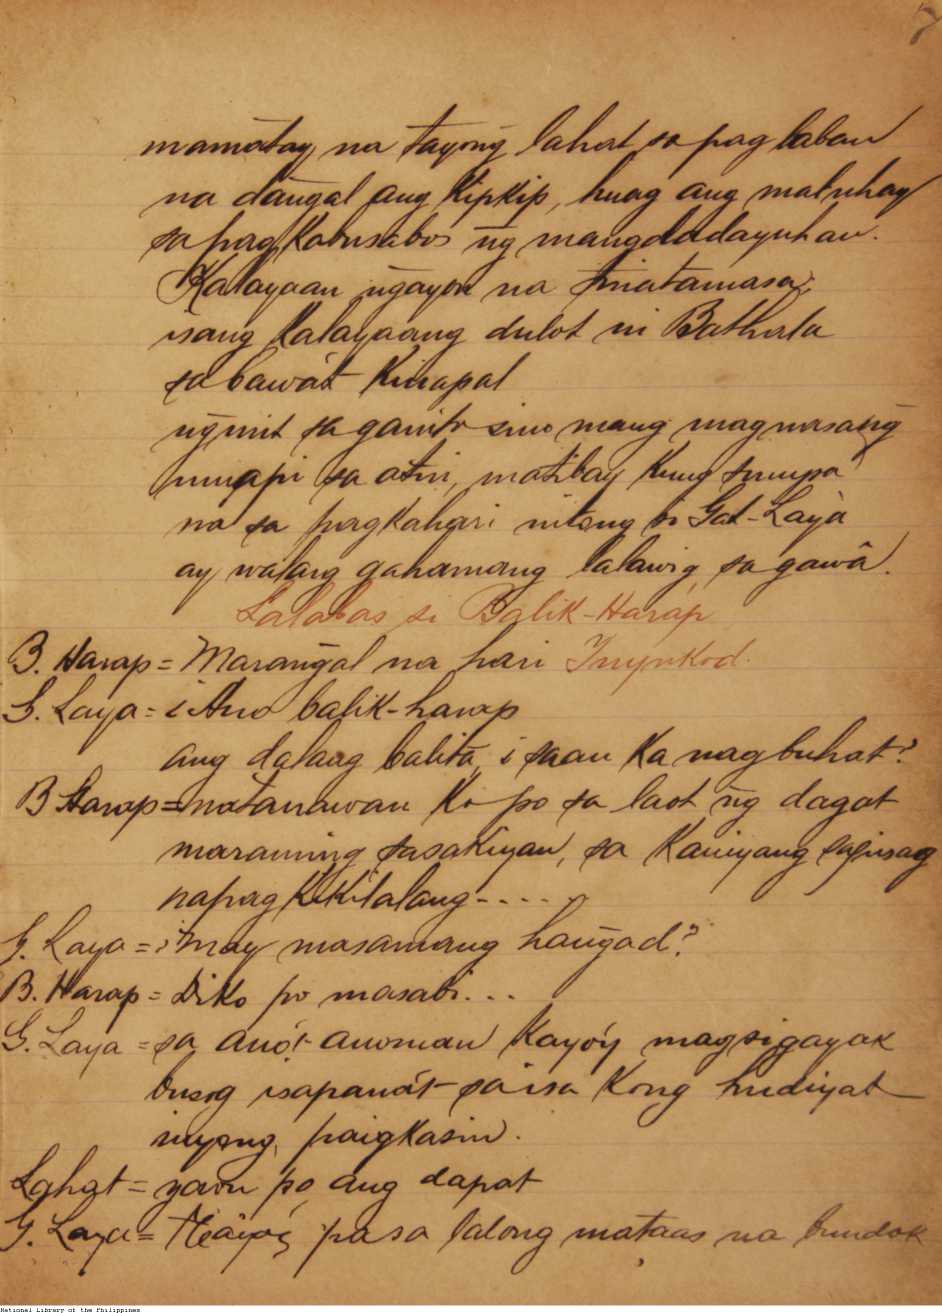 7
mamatay na tayong lahat sa pag laban
na dañgal ang Kipkip, huag ang mabuhay
sa pag Kabusabos n̄g mangdadayuhan.
Kalayaan n̄gayon na tinatamasa,
isang Kalayaang dulot ni Bathala
sa bawa't Kinapal
n̄gunit sa ganito sino mang magnasang
umapi sa atin, matibay Kung sumpa
na sa pagkahari nitong si Gat-Laya
ay walang gahamang lalawig sa gawâ.
Lalabas si Balik-Harap
B. Harap = Maran̄gal na hari Inyukod.
G. Laya = ¿Ano balik-harap
ang dalang balita, ¿ saan Ka nagbuhat?
B Harap = natanawan Ko po sa laot n̄g dagat
maraming sasakiyan, sa Kaniyang sagisag
napag KiKilalang - . . . .
G. Laya = ¿may masamang han̄gad?
B. Harap = DiKo po masabi. . .
G. Laya = sa ano't anoman Kayo'y magsigayak
busog isapana't sa isa Kong hudiyat
inyong, paigkasin.
Lahat = yaon po ang dapat
G. Laya = pa sa lalong mataas na bundok
National Library of the Philippines